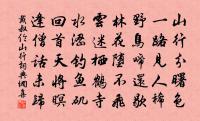 山行分曙色
一路見人稀
野鳥啼還歇
林花墮不飛
雲迷栖鶴寺
水澀釣魚磯
回首天將暝
逢僧話未歸
戴叔倫山行詞典網書